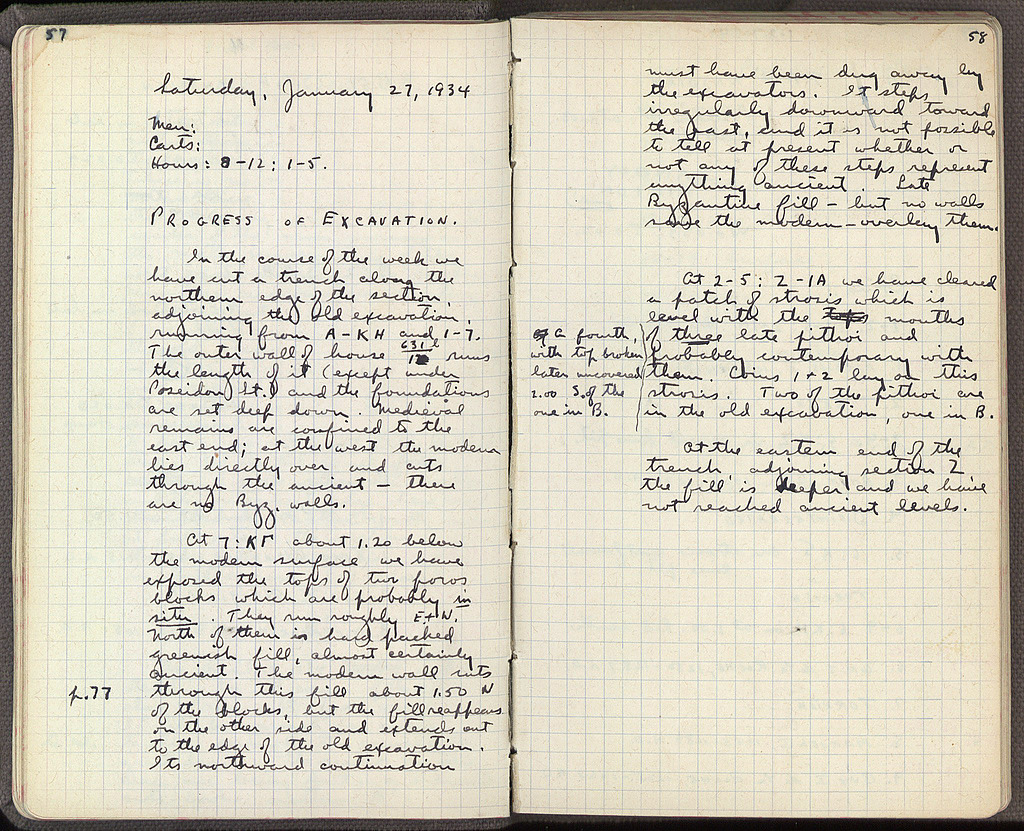 57
Saturday, January 27, 1934
Men:
Carts:
Hours: 8-12; 1-5.
PROGRESS OF EXCAVATION.
In the course of the week we
have cut a trench along the
northern edge of the section,
adjoining the old excavation,
running from A-KH and 1-7.
The outer wall of house 631/ runs
the length of it (except under
Poseidon St.) and the foundations
are set deep down. Medieval
remains are confined to the
east end; at the west the modern
lies directly over and cuts
through the ancient - there
are no Byz. walls.
At 7:ΚΓ about 1.20 below
the modern surface we have
exposed the tops of two poros
blocks which are probably in
situ. They run roughly E+W.
North of them is hard packed
greenish fill, almost certainly
ancient. The modern wall cuts
p.77
through this fill about 1.50 N
of the blocks, but the fill reappears
on the other side and extends out
to the edge of the old excavation.
Its northward continuation
58
must have been dug away by
the excavators. It steps
irregularly downward toward
the east, and it is not possible
to tell at present whether or
not any of these steps represent
anything ancient. Late
Byzantine fill - but no walls
save the modern - overlay them.
At 2-5: Z-1A we have cleared
a patch of strosis which is
level with the tops mouths
of three late pithoi and
probably contemporary with
them. Coins 1+2 lay on this
strosis. Two of the pithoi are
in the old excavation, one in B.
A fourth,
with top broken
later uncovered
2.00 S. of the
one in B.
At the eastern end of the
trench, adjoining section Z
the fill is deeper and we have
not reached ancient levels.